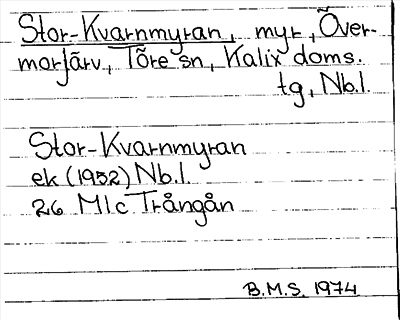 Stor-Kvarnmyran, myr, Över-
morjärv, Töre sn, Kalix doms.
tg, Nb.l.
Stor-Kvarnmyran
ek (1952) Nb.l.
26 MIc Trångån
B.M.S. 1974